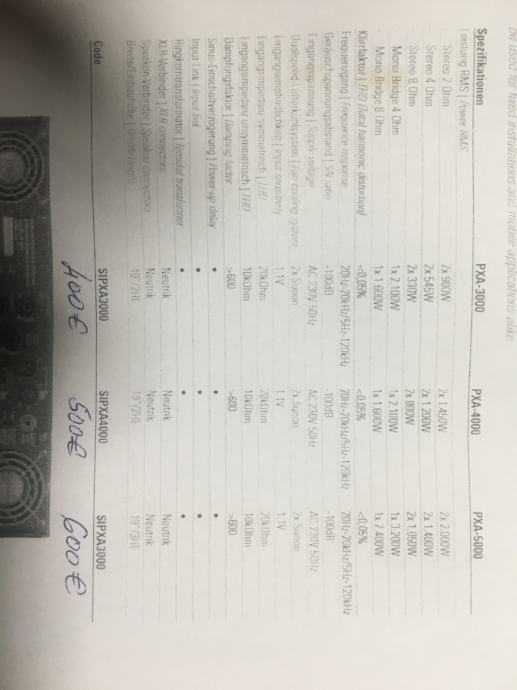 be used for fixed installations and mobile applications alike.
Spezifikationen PXA-3000 PXA-4000 PXA-5000
Leistung RMS | Power RMS
Stereo 2 Ohm 2x 900W 2x 1.450W 2x 2.000W
Stereo 4 Ohm 2x 545W 2x 1.200W 2x 1.400W
Stereo 8 Ohm 2x 330W 2x 800W 2x 1.050W
Mono Bridge 4 Ohm 1x 2.100W 1x 2.100W 1x 3.200W
Mono Bridge 8 Ohm 1x 1.600W 1x 1.600W 1x 2.400W
Klirrfaktor | THD (total harmonic distortion) <0.05% <0.05% <0.05%
Frequenzgang | Frequence response 20Hz-20kHz/5Hz-120kHz 20Hz-20kHz/5Hz-120kHz 20Hz-20kHz/5Hz-120kHz
Geräuschspannungsabstand | S/N ratio -100dB -100dB -100dB
Eingangsspannung | Supply voltage AC 230V 50Hz AC 230V 50Hz AC 230V 50Hz
Dualspeed Lüfterkühlsystem | Fan cooling system 2x Sunon 2x Sunon 2x Sunon
Eingangsempfindlichkeit | Input sensitivity 1.1V 1.1V 1.1V
Eingangsimpedanz symmetrisch | THD 20kOhm 20kOhm 20kOhm
Eingangsimpedanz unsymmetrisch | THD 10kOhm 10kOhm 10kOhm
Dämpfungsfaktor | Damping factor >600 >600 >600
Sinus-Einschaltverzögerung | Power-up delay • • •
Input link | Input link • • •
Ringkerntransformator | Toroidal transformer • • •
XLR-Verbinder | XLR connectors Neutrik Neutrik Neutrik
Speakon-Verbinder | Speakon connectors Neutrik Neutrik Neutrik
Breite/Einbauhöhe | Width/Height 19"/2HE 19"/2HE 19"/3HE
Code SIPXA3000 SIPXA4000 SIPXA3000
400€ 500€ 600€